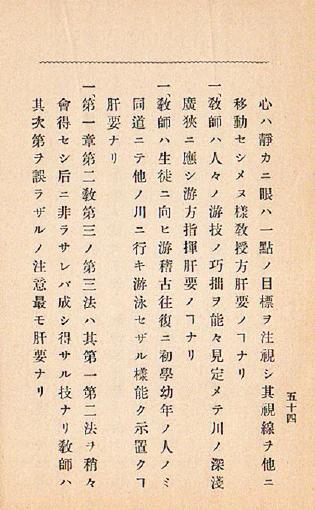 心ハ靜カニ眼ハ一點ノ目標ヲ注視シ其視線ヲ他ニ
移動セシメヌ樣敎授方肝要ノヿナリ
一、敎師ハ人々ノ游技ノ巧拙ヲ能々見定メテ川ノ深淺
廣狹ニ應シ游方指揮肝要ノヿナリ
一、敎師ハ生徒ニ向ヒ游稽古往復ニ初學幼年ノ人ノミ
同道ニテ他ノ川ニ行キ游泳セザル樣能ク示置クヿ
肝要ナリ
一、第一章第二敎第三ノ第三法ハ其第一第二法ヲ稍々
會得セシ后ニ非ラサレバ成シ得サル技ナリ敎師ハ
其次第ヲ誤ラザルノ注意最モ肝要ナリ
五十四